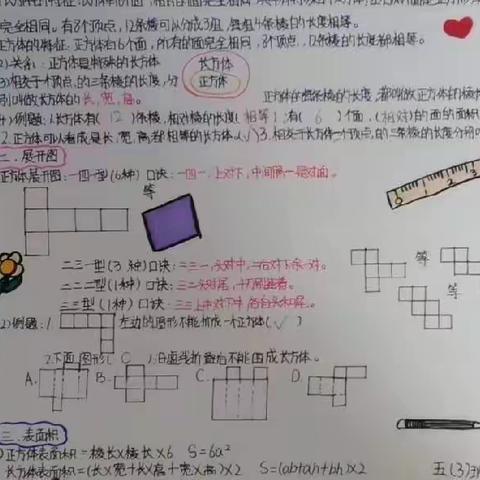 完全相同。有8个顶点,12条棱可以分成3组,每组4条棱的长度相等。
正方体的特征:正方体有6个面,所有的面完全相同,8个顶点,12条棱的长度都相等。
2)关系:正方体是特殊的长方体
长方体
正方体
3)相交于一个顶点的三条棱的长度,分
别叫做长方体的长,宽,高。
正方体的每条棱的长度,都叫做正方体的棱长
4)例题:1.长方体有(12)条棱,相对棱的长度(相等);有(6)个面,(相对)的面的面积
2.正方体可以看成是长,宽,高都相等的长方体(√)3.相交于长方体一个顶点的三条棱的长度分别叫
二.展开图
正方体展开图:一四一型(6种)口诀:一四一,上对下,中间隔一是对面。
等
二三一型(3种)口诀:二三一,
二二二型(1种)口诀:二二二
三三型(1种)口诀:三三
等
等
2)例题:1.
左边的图形不能折成一个正方体(√)
2.下面图形(C)沿虚线折叠后不能围成长方体。
A.
B.
C.
D.
三.表面积
正方体表面积=棱长×棱长×6 S=6a²
长方体表面积=(长×宽+长×高+宽×高)×2 S=(ab+ah+bh)×2
五(3)班
0 1 2 3